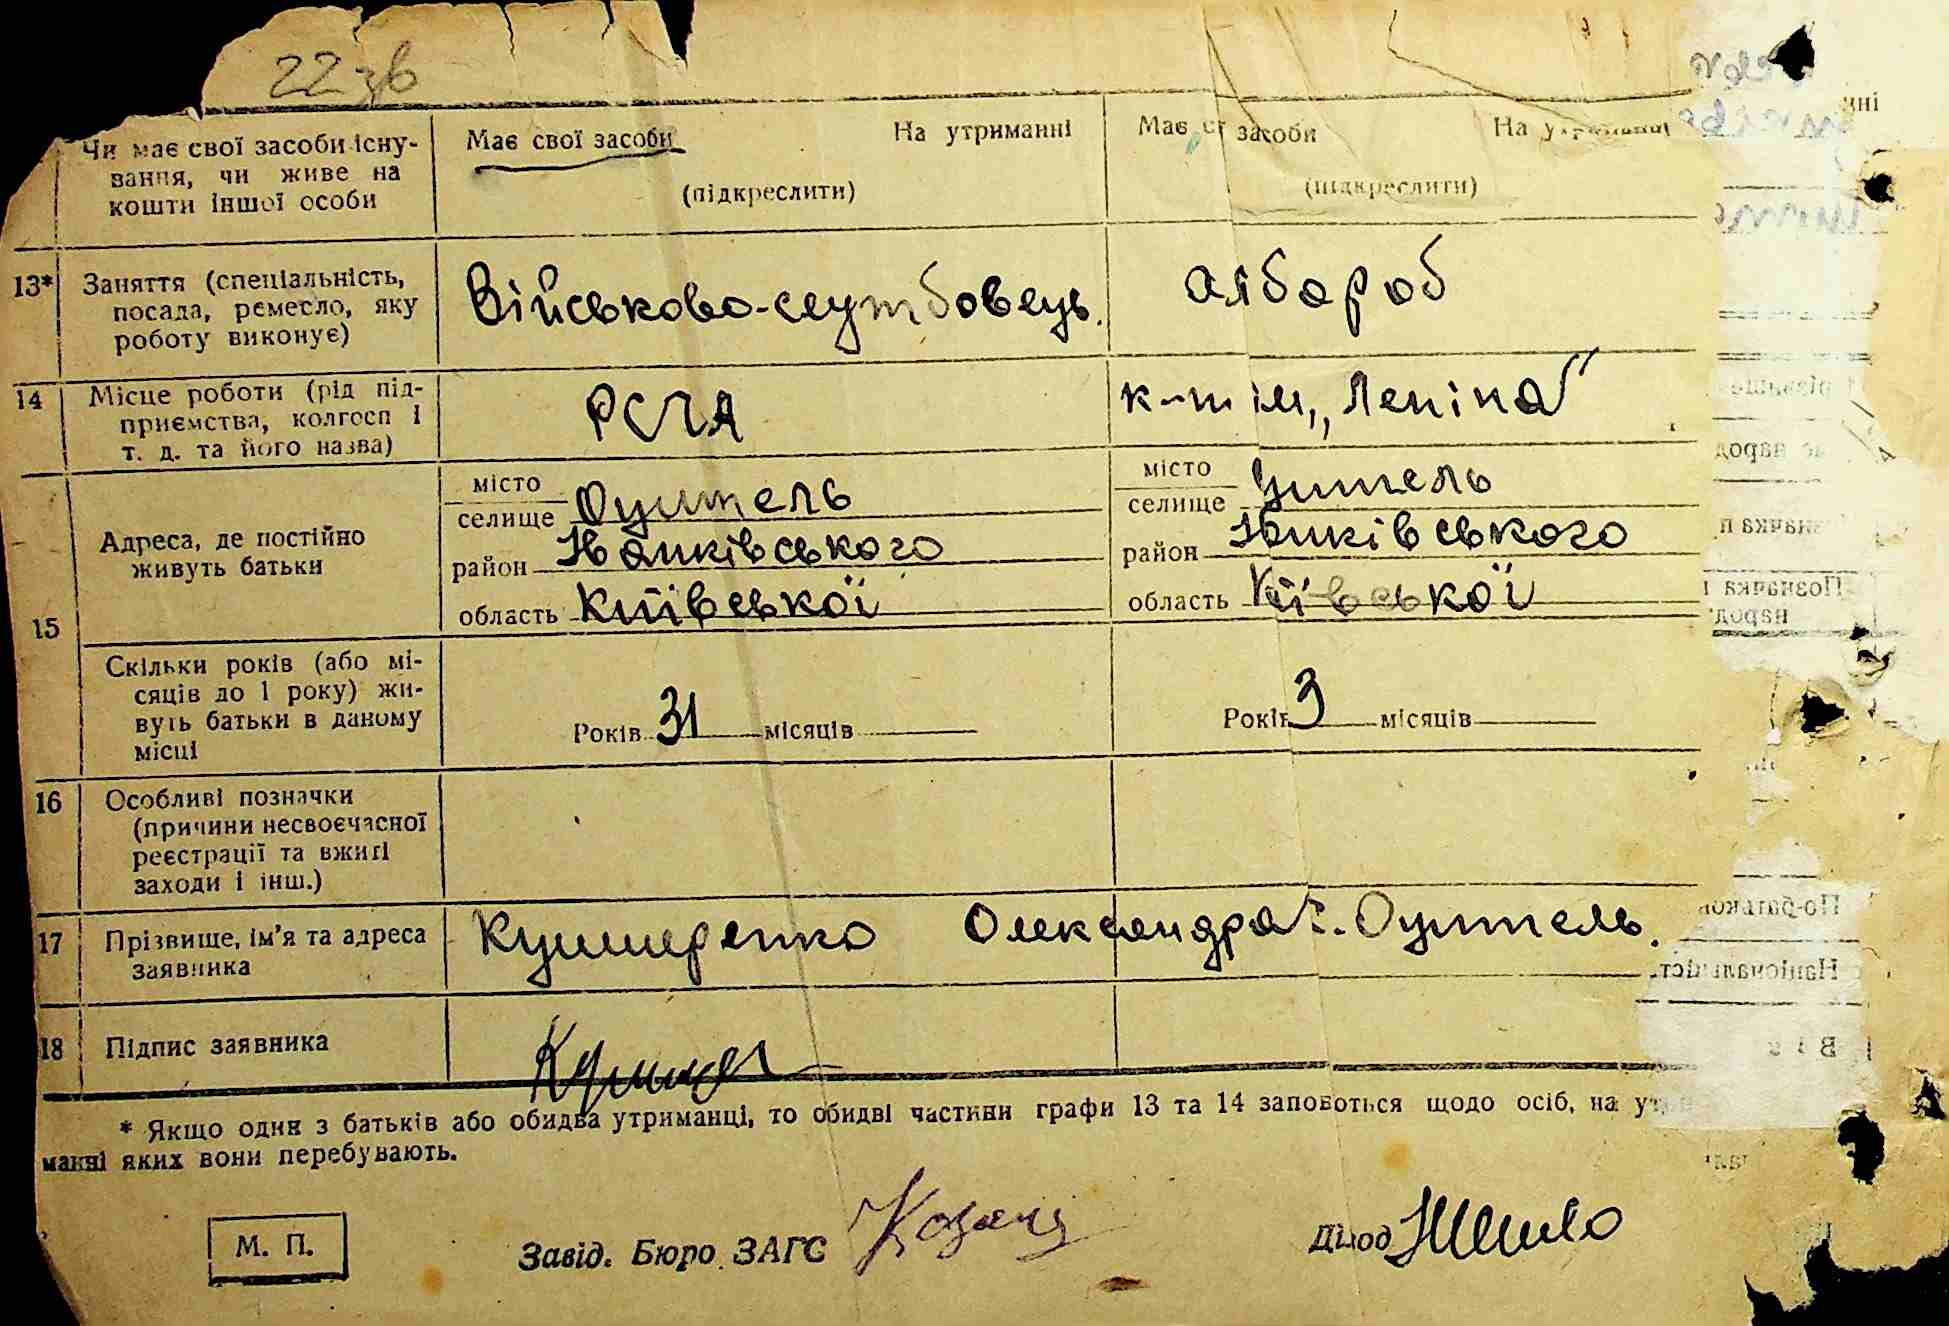 22 зв
Чи має свої засоби існу-
вання, чи живе на
кошти іншої особи
Має свої засоби На утриманні
(підкреслити)
Має засоби На утриманні
(підкреслити)
13* Заняття (спеціальність,
посада, ремесло, яку
роботу виконує)
Військово-службовець.
хлібороб
14 Місце роботи (рід під-
приємства, колгосп і
т. д. та його назва)
РСЧА
к-п ім „Леніна"
15 Адреса, де постійно
живуть батьки
місто
селище Оцитель
район Іванківського
область Київської
місто
селище
район
область Київської
Скільки років (або мі-
сяців до 1 року) жи-
вуть батьки в даному
місці
Років 31 місяців
Років 3 місяців
16 Особливі позначки
(причини несвоєчасної
реєстрації та вжиті
заходи і інш.)
17 Прізвище, ім'я та адреса
заявника
Кушніренко Олександра с. Оцитель.
18 Підпис заявника
* Якщо один з батьків або обидва утриманці, то обидві частини графи 13 та 14 заповються щодо осіб, на ут
манні яких вони перебувають.
М. П.
Завід. Бюро ЗАГС
Діловод